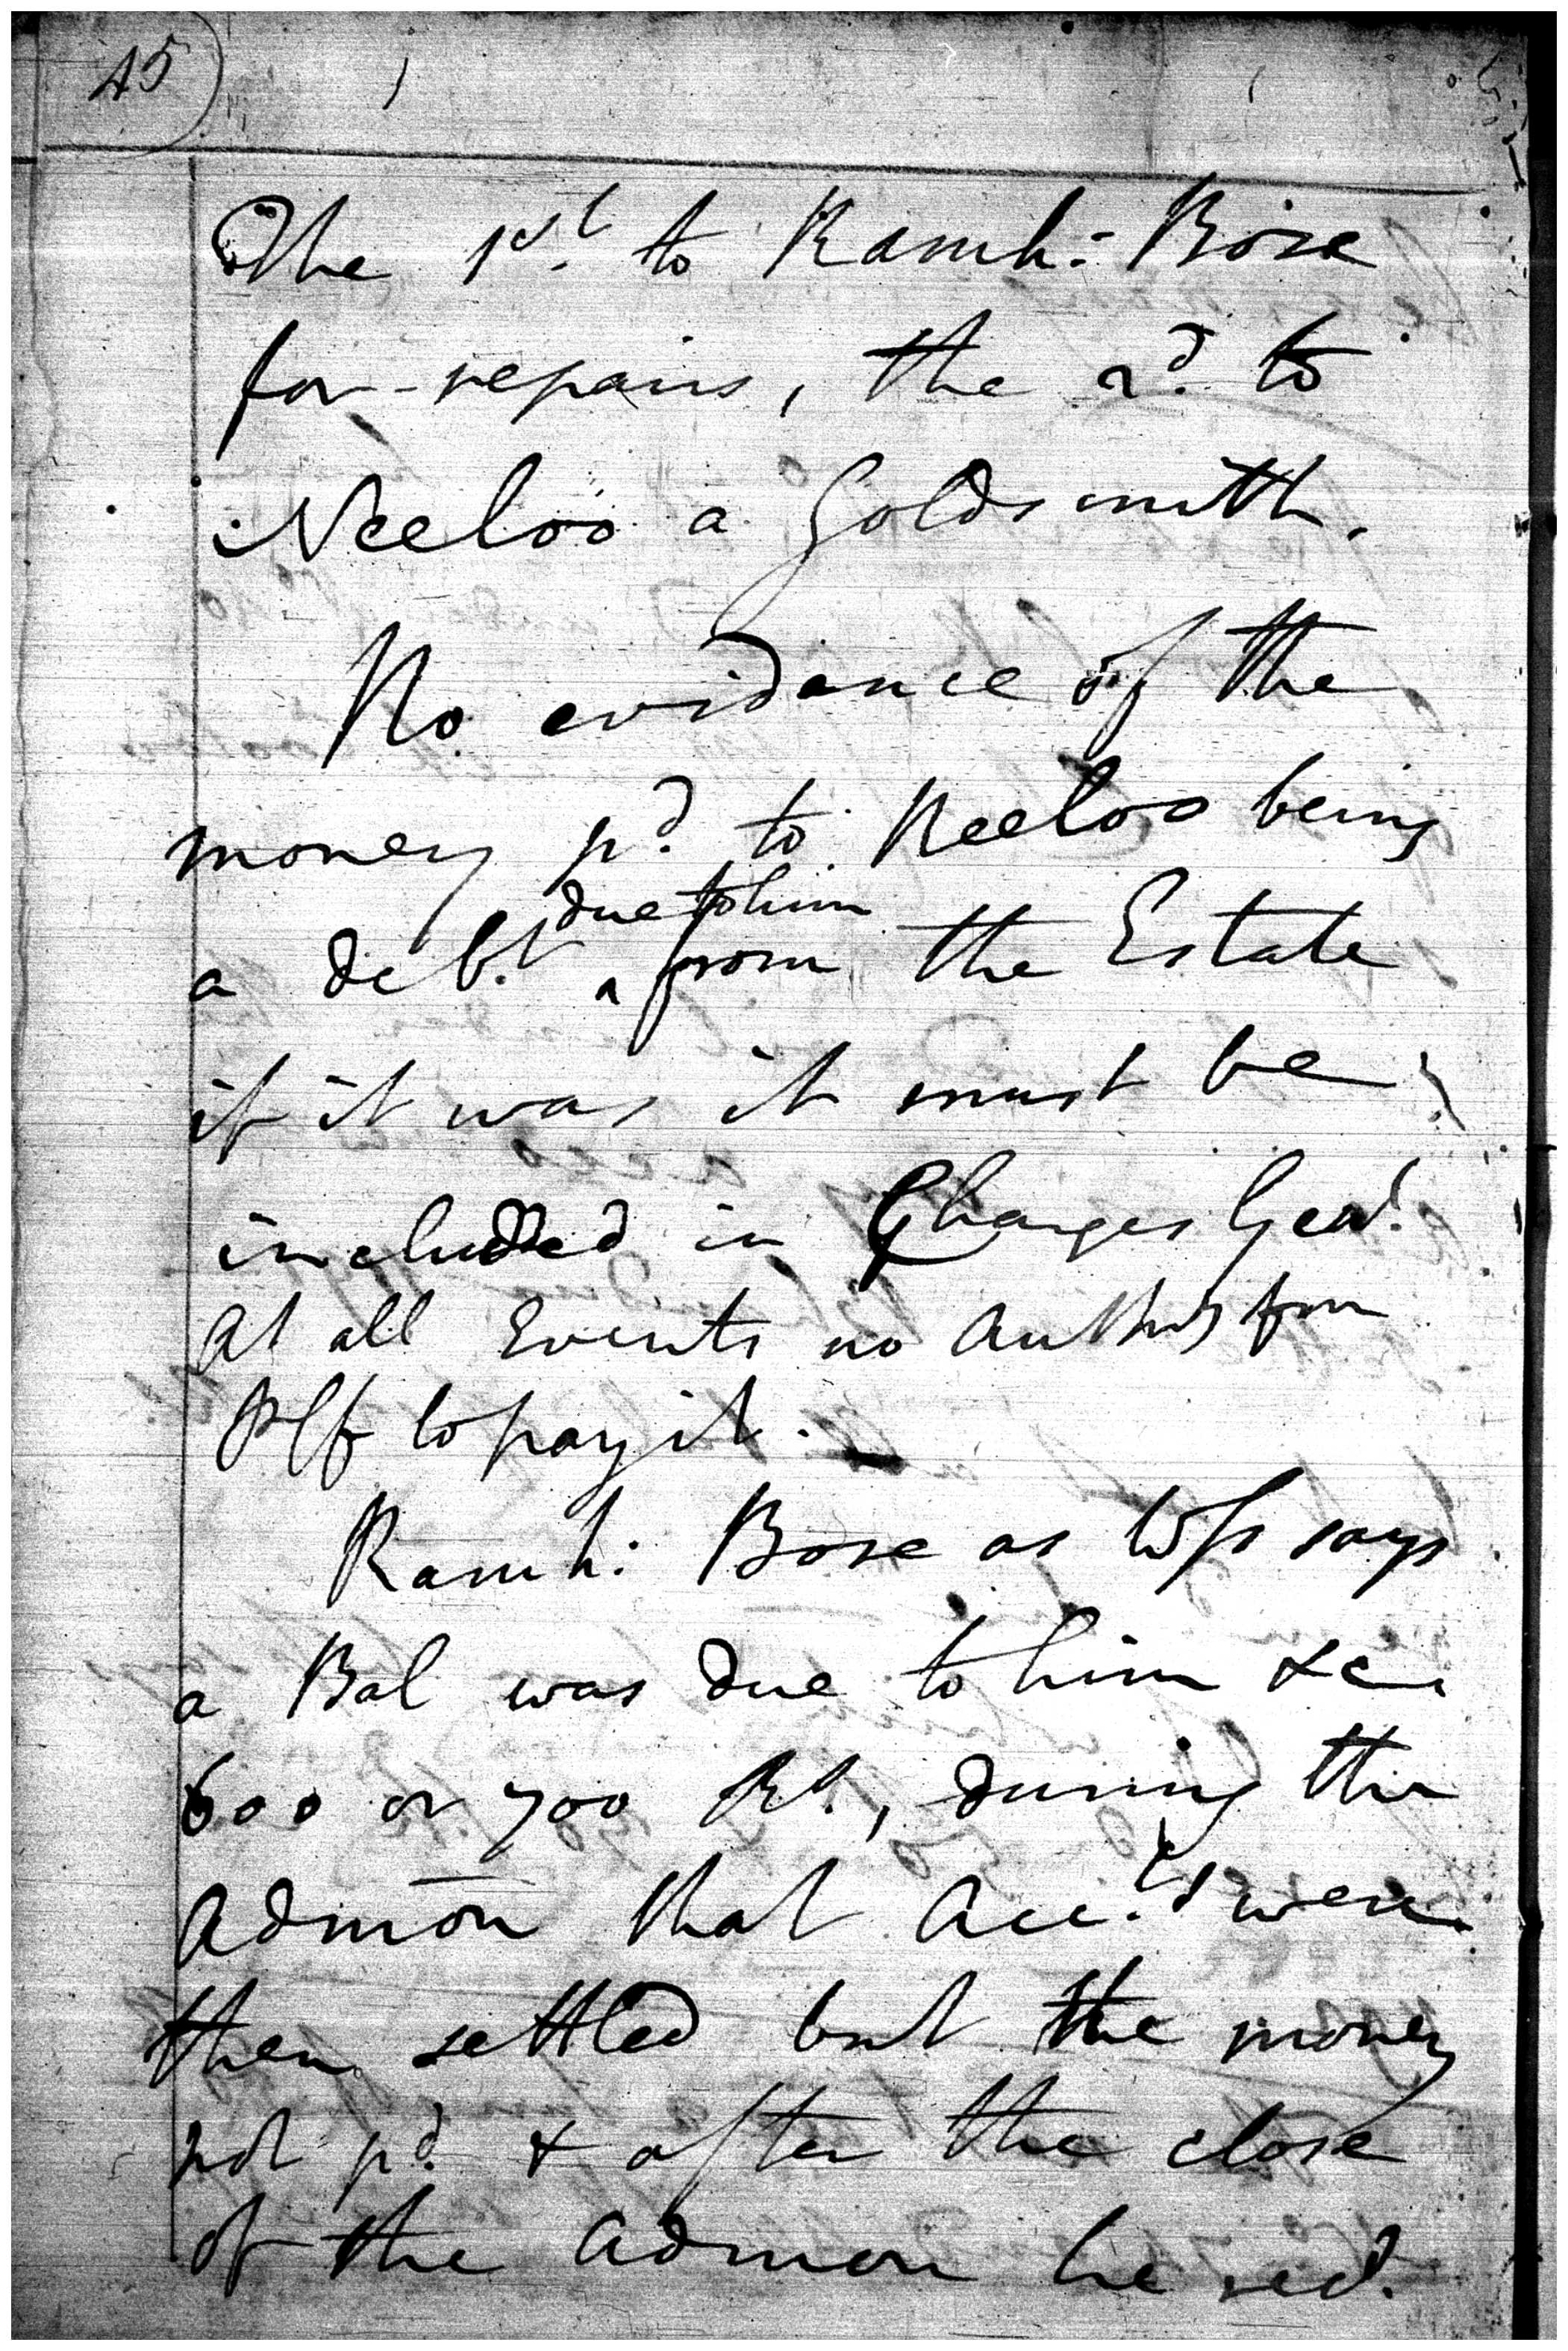 45)
The 1st. to Ramk: Bose
for repairs, the 2d. to
Neeloo a Goldsmith.
No evidence of the
money pd. to Neeloo being
due to him
a debt. ^ from the Estate
if it was it must be
included in Charges Genl.
At all Events no Authy from
Plff to pay it. _
Ramk: Bose as Wss says
a Bal was due to him &c.
600 or 700 Rs., during the
Admon that Acc.ts were
then settled but the money
not pd. & after the close
of the Admon he recd.